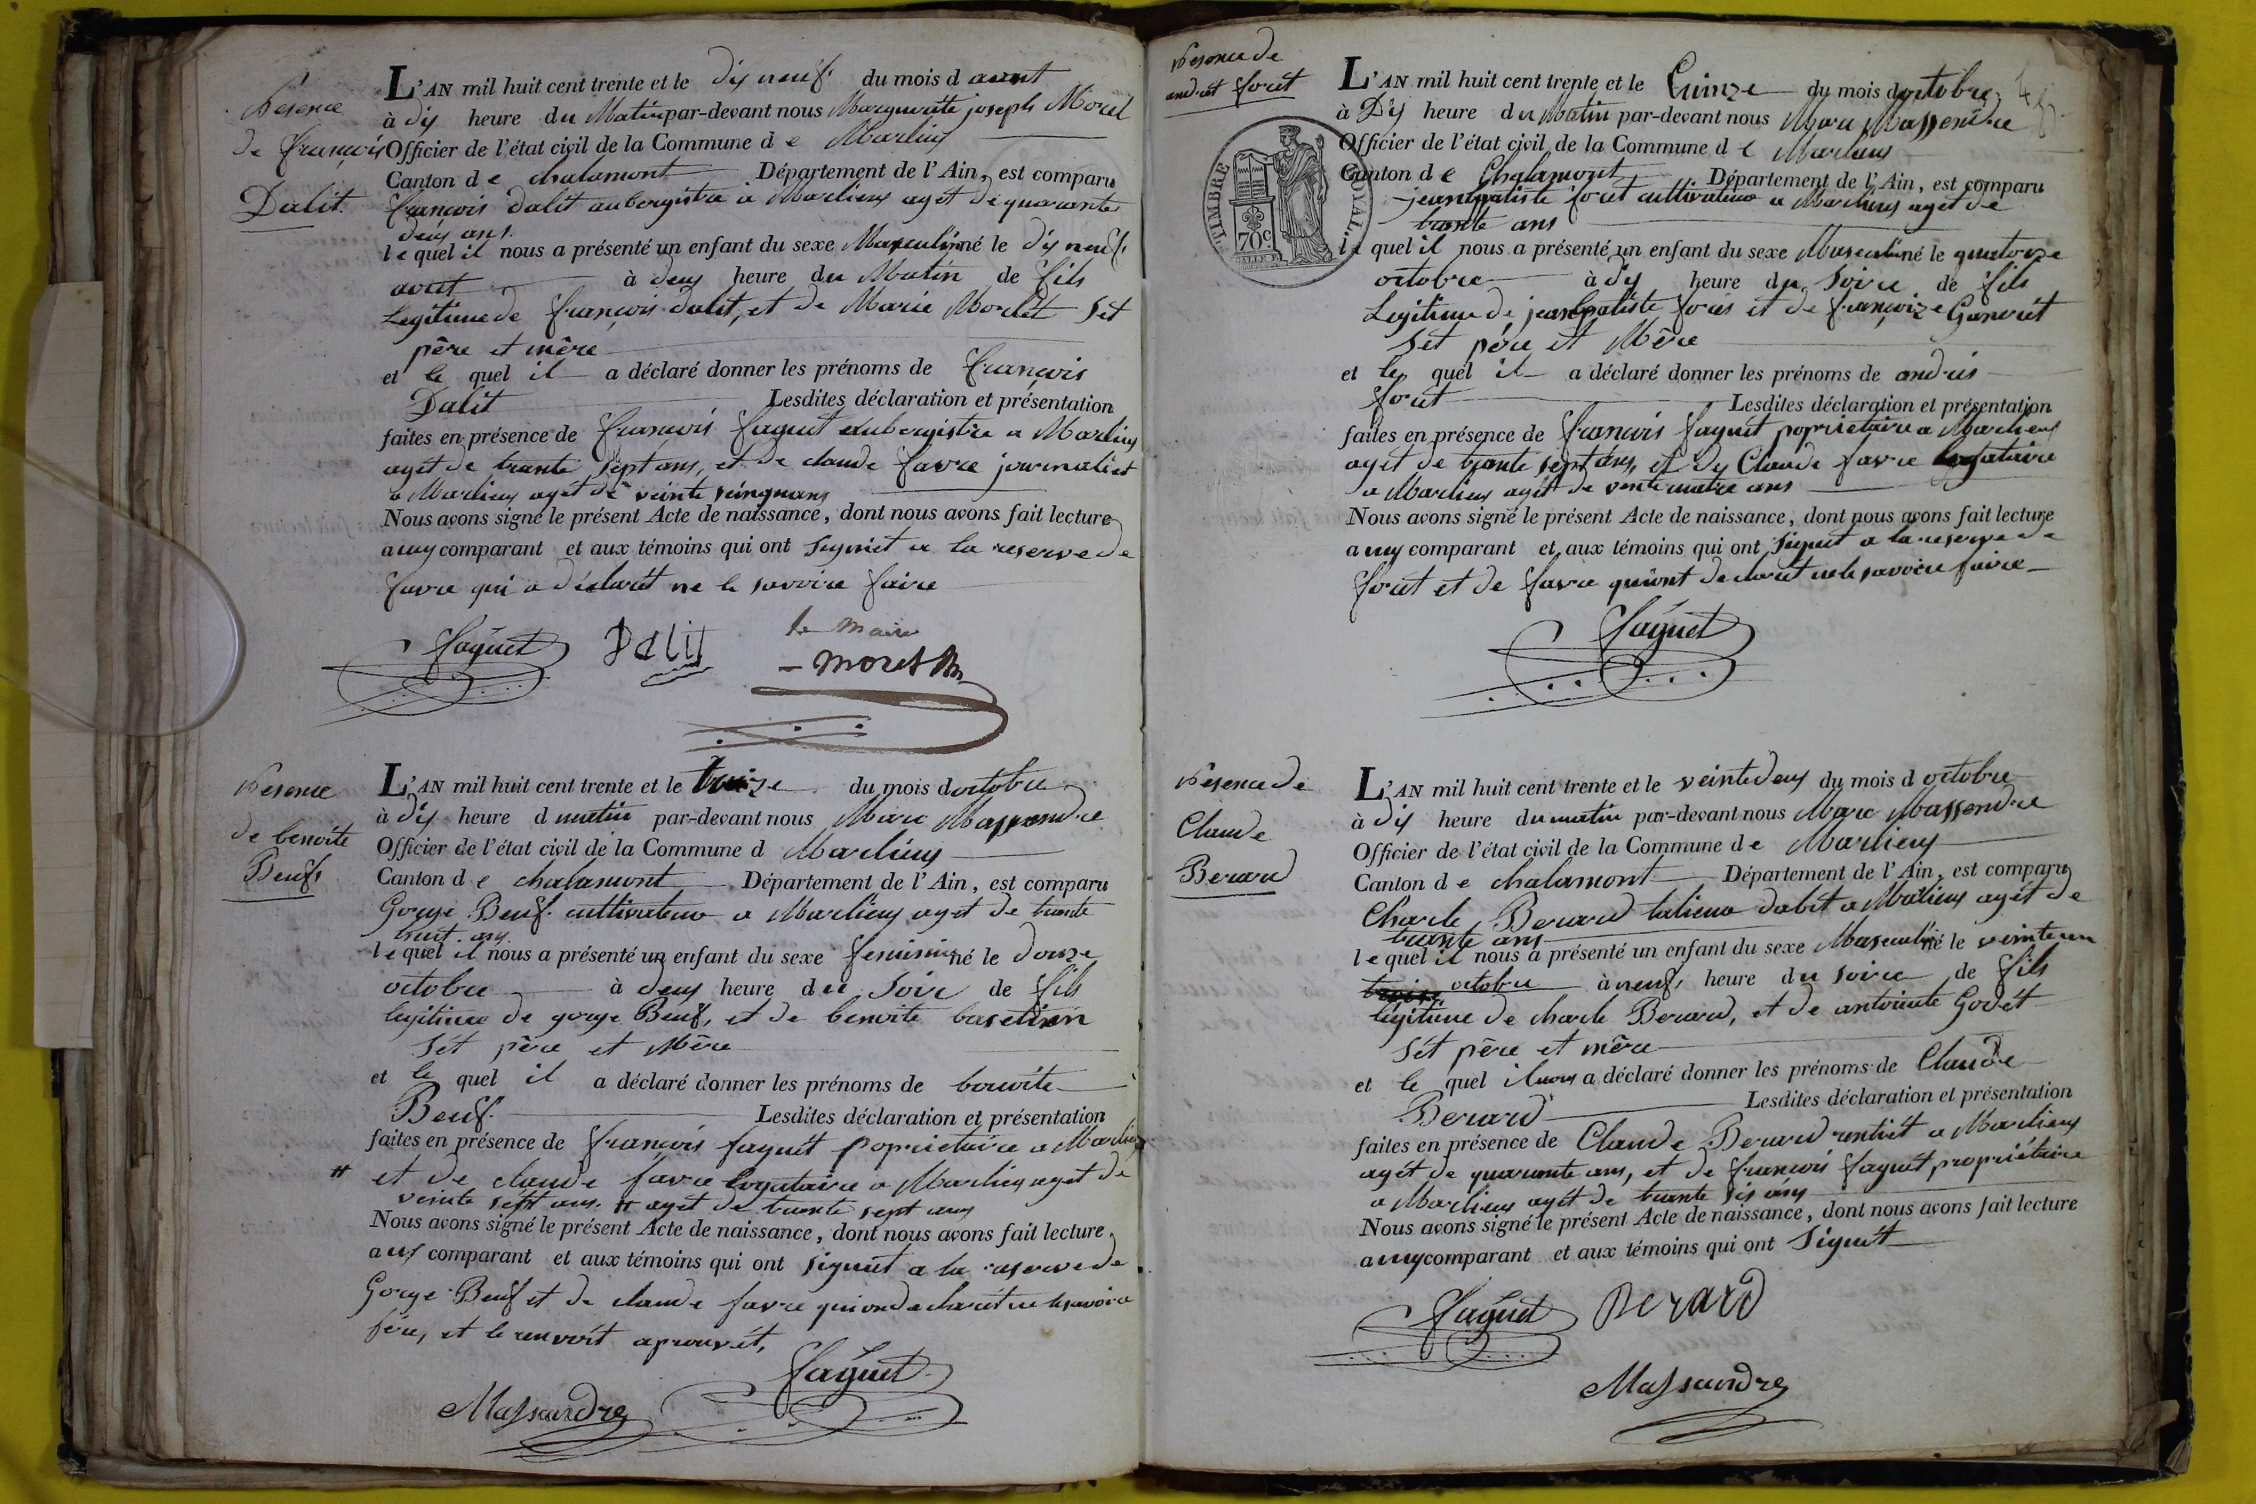 Présence
de françois
Dalit.
L'AN mil huit cent trente et le dix neuf du mois d aout
à dix heure du Matin par-devant nous Marguerite joseph Morel
Officier de l'état civil de la Commune d e Marlieux
Canton d e chalamont Département de l'Ain, est comparu
françois dalit aubergistre à Marlieux agét de quarante
deux ans.
le quel il nous a présenté un enfant du sexe Masculin né le dix neuf
aout à deux heure du Matin de fils
Legitime de françois dalit, et de Marie Morlet Sét
père et mère
et le quel il a déclaré donner les prénoms de françois
Dalit Lesdites déclaration et présentation
faites en présence de françois faguet aubergistre a Marlieux
agét de trante sept ans, et de claude favre journaliet
a Marlieux agét de veinte seinq ans
Nous avons signé le présent Acte de naissance, dont nous avons fait lecture
a uy comparant et aux témoins qui ont Signiét a la reserve de
favre qui a déclarét ne le savoire faire
faguet Dalit le maire
Morel
Présence
de benoite
Beuf
L'AN mil huit cent trente et le treize du mois d octobre
à dix heure d matin par-devant nous Marc Massandre
Officier de l'état civil de la Commune d Marlieux
Canton d e chalamont Département de l'Ain, est comparu
Gorge Beuf cultivateur a Marlieux agét de trante
huit ans
le quel il nous a présenté un enfant du sexe feminin né le douze
octobre à deux heure du Soir de fils
legitime de gorge Beuf, et de benoite
Sét père et Mère
et le quel il a déclaré donner les prénoms de benoite
Beuf. Lesdites déclaration et présentation
faites en présence de françois faguét popriétaire a Marlieux
# et de claude favre logataire a Marlieux agét de
veinte sept ans. # agét de trante sept ans
Nous avons signé le présent Acte de naissance, dont nous avons fait lecture
a ux comparant et aux témoins qui ont signiét a la reserve de
Gorge Beuf et de claude favre qui on declarét ne le savoire
fére, et le renvoit aprouvét,
faguet
Massandre
Présence de
andrét forét
L'AN mil huit cent trente et le Quinze du mois d octobre
à Dix heure du Matin par-devant nous Marc Massendre
Officier de l'état civil de la Commune d e Marlieux
TIMBRE ROYAL
70c
Canton d e Chalamont Département de l'Ain, est comparu
jeanbatiste forét cultivateur a Marlieux agét de
trante ans
le quel il nous a présenté un enfant du sexe Masculin né le quatorze
octobre à dix heure du Soire de fils
Legitime de jeanbatiste forés et de françoize Ganerét
Sét pére et Mère
et le quel il a déclaré donner les prénoms de andrés
forét Lesdites déclaration et présentation
faites en présence de françois faguét popriétaire a Marlieux
agét de trante sept ans, et dy Claude favre logataire
a Marlieux agét de ventcuatre ans
Nous avons signé le présent Acte de naissance, dont nous avons fait lecture
a uy comparant et aux témoins qui ont signiét a la reserve de
forét et de favre qui ont declarét ne le savoire faire
faguet
Présence de
Claude
Berard
L'AN mil huit cent trente et le veintedeux du mois d octobre
à dix heure du matin par-devant nous Marc Massendre
Officier de l'état civil de la Commune d e Marlieux
Canton d e chalamont Département de l'Ain, est comparu
Charle Berard talieur dabit a Marlieux agét de
trante ans
le quel il nous a présenté un enfant du sexe Masculin né le veinteun
octobre à neuf heure du soire de fils
légitime de charle Berard, et de antoinete Godét
Sét père et mère
et le quel il nous a déclaré donner les prénoms de Claude
Berard Lesdites déclaration et présentation
faites en présence de Claude Berard rentiét a Marlieux
agét de quarante ans, et de françois faguét propriétaire
a Marlieux agét de trante sis ans
Nous avons signé le présent Acte de naissance, dont nous avons fait lecture
a uy comparant et aux témoins qui ont Signiét
faguet Berard
Massandre